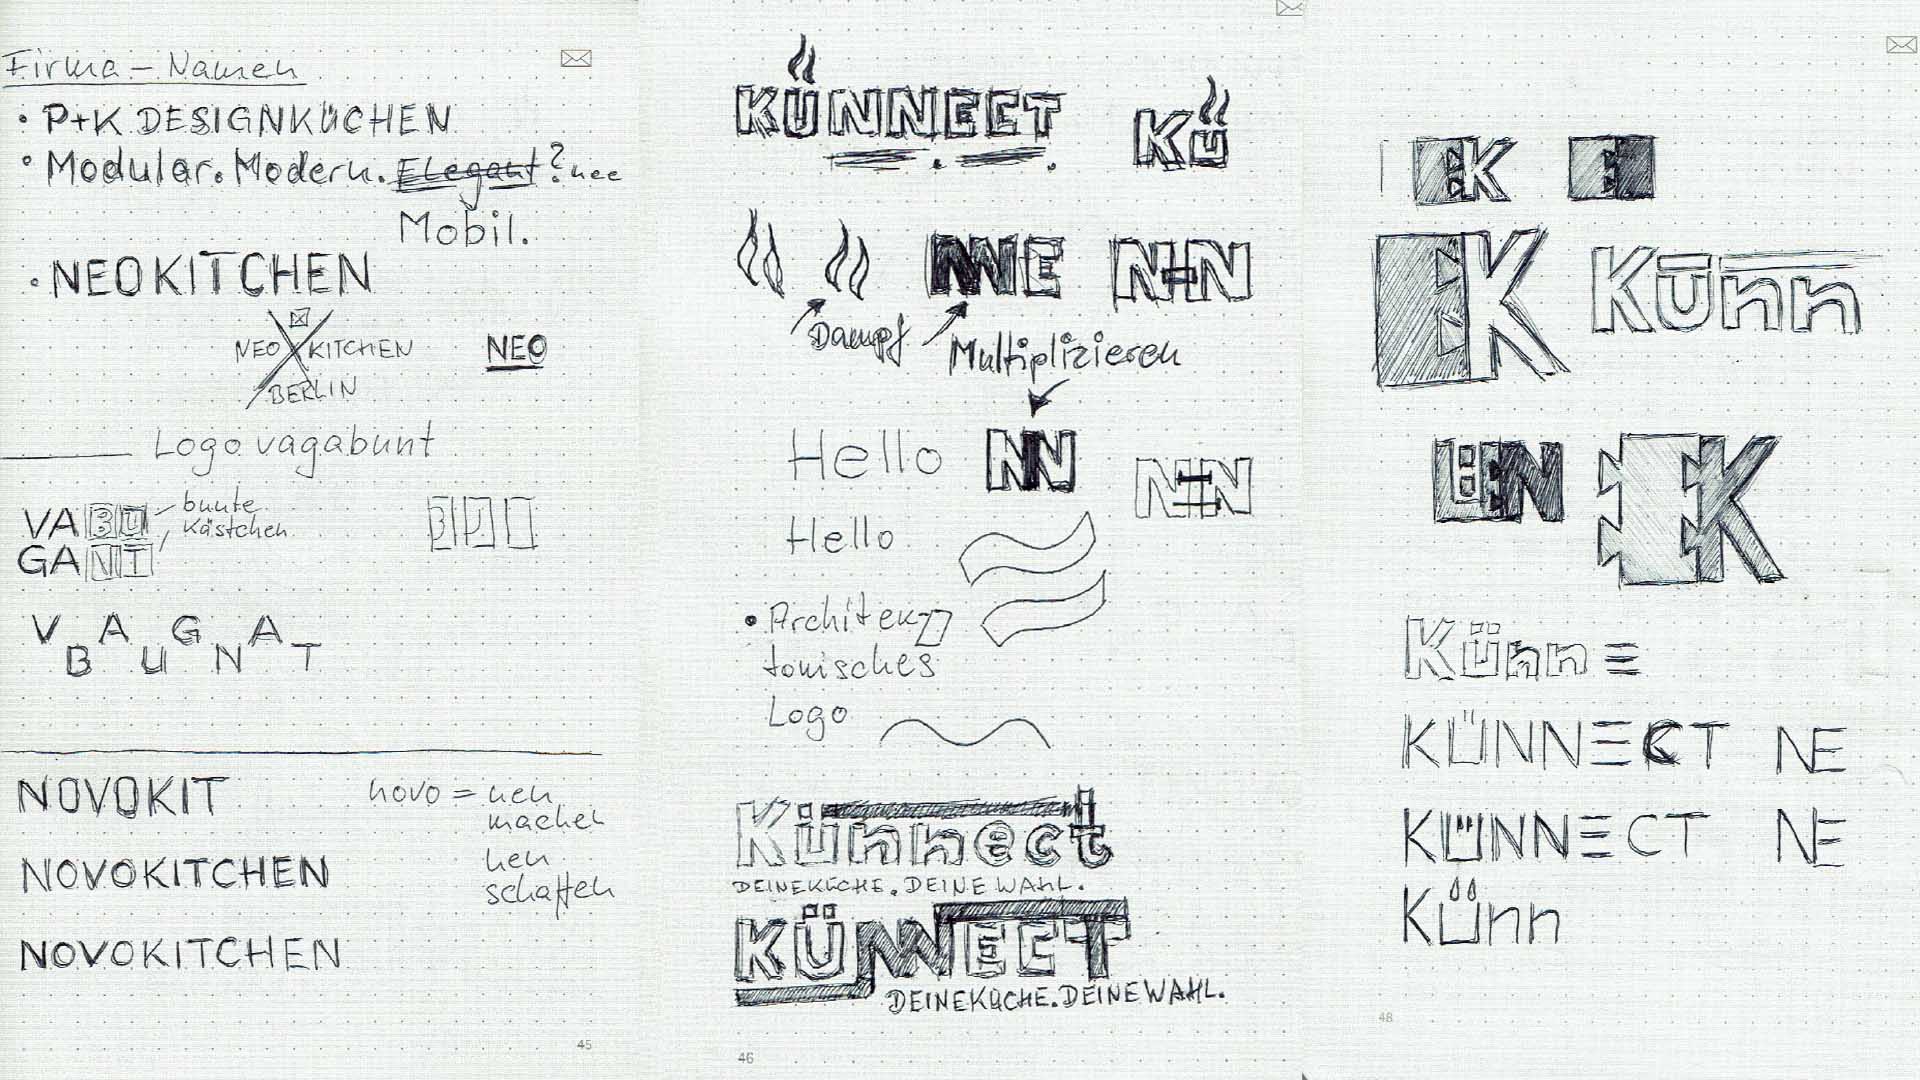 Firma – Namen
• P+K DESIGNKÜCHEN
• Modular. Modern. Elegant? nee
Mobil.
• NEOKITCHEN
NEO KITCHEN
BERLIN
NEO
Logo vagabunt
VABU
GANT
bunte
Kästchen
V A G A
B U N T
NOVOKIT
novo = neu
machen
neu
schaffen
NOVOKITCHEN
NOVOKITCHEN
45
KÜNNEET
KÜ
NNE
N-N
Dampf
Multiplizieren
Hello
NN
NN
Hello
• Architek-
tonisches
Logo
Künnect
DEINE KÜCHE. DEINE WAHL.
KÜNNECT
DEINE KÜCHE. DEINE WAHL.
46
K
K
Künn
ÜN
K
Künn
KÜNNECT
NE
KÜNNECT
NE
Künn
48